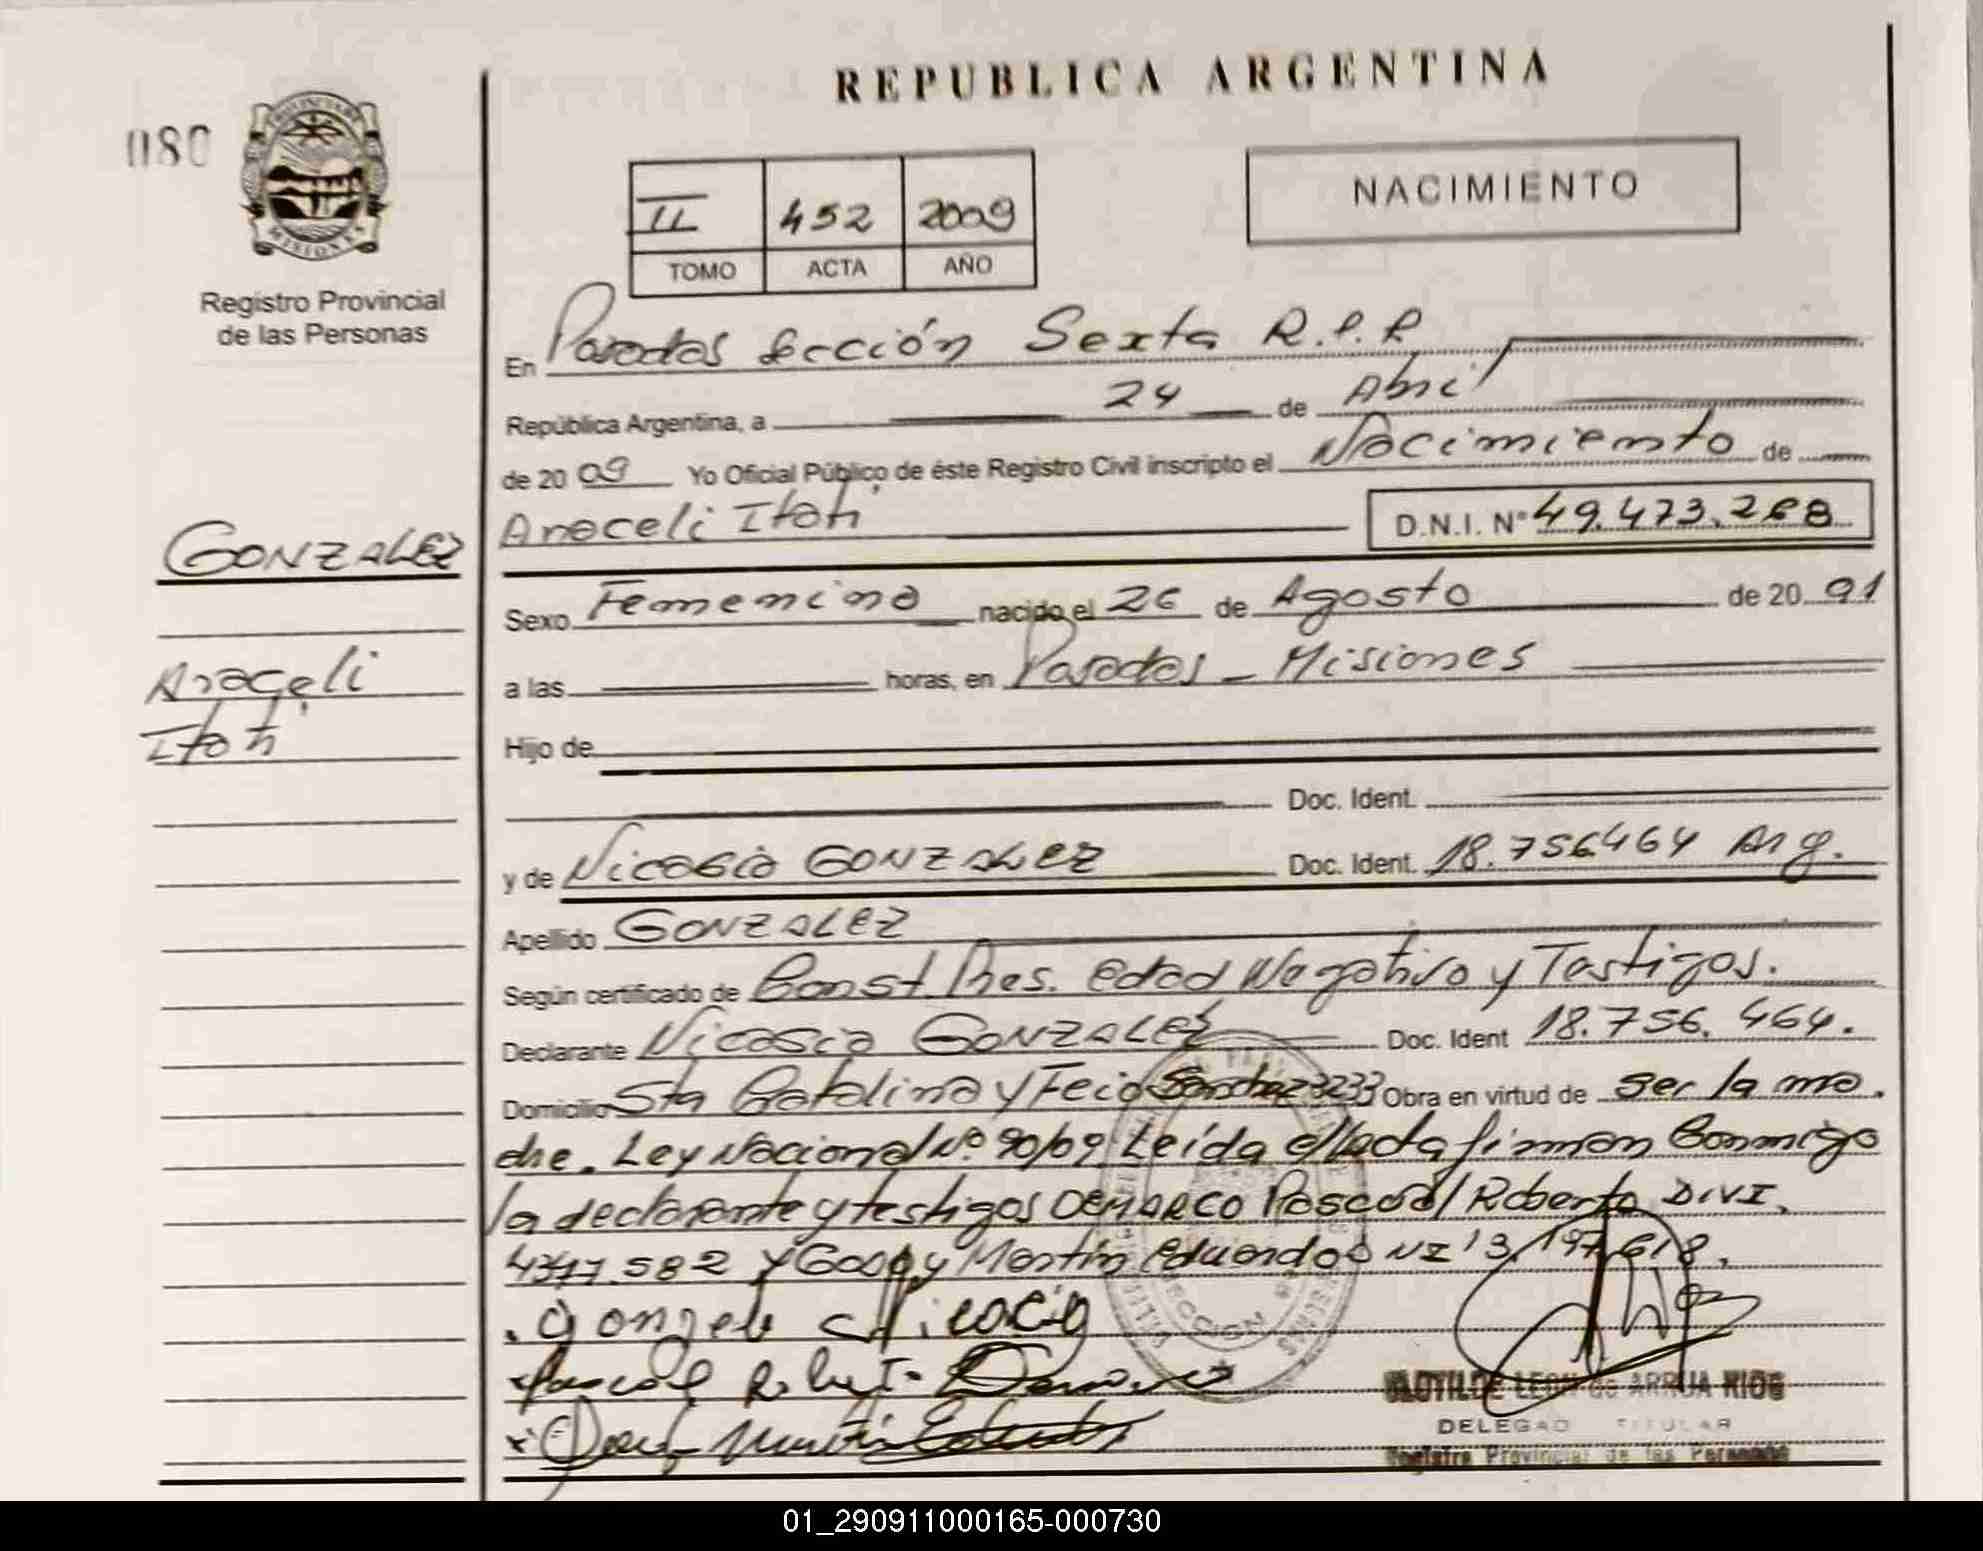 REPUBLICA ARGENTINA
080
PROVINCIA DE
MISIONES
II 452 2009
TOMO ACTA AÑO
NACIMIENTO
Registro Provincial
de las Personas
En Posadas Sección Sexta R.P.P
República Argentina, a 24 de Abril
de 2009 Yo Oficial Público de éste Registro Civil inscripto el Nacimiento de
GONZALEZ
Araceli Itatí
D.N.I. N° 49.473.268
Sexo Femenino nacido el 26 de Agosto de 20 01
Araceli
Itatí
a las horas, en Posadas - Misiones
Hijo de
Doc. Ident.
y de Nicasia GONZALEZ Doc. Ident. 18.756464 Arg.
Apellido GONZALEZ
Según certificado de Const. Pres. edad Negativo y Testigos.
Declarante Nicasia GONZALEZ Doc. Ident 18.756.464.
Domicilio Sta Catalina y Fecio Sanchez 3233 Obra en virtud de Ser la ma
dre. Ley Nacional N° 90/09. Leída el Acta firman Conmigo
la declarante y testigos DEMARCO Pascual Roberto D.N.I.
y Martín Eduardo DNI 13,197,618.
Gonzale Nicacia
Pascual Roberto Demarco
Martin Eduardo
CLOTILDE LEON de ARRUA RIOS
DELEGADO TITULAR
Registro Provincial de las Personas
01_290911000165-000730